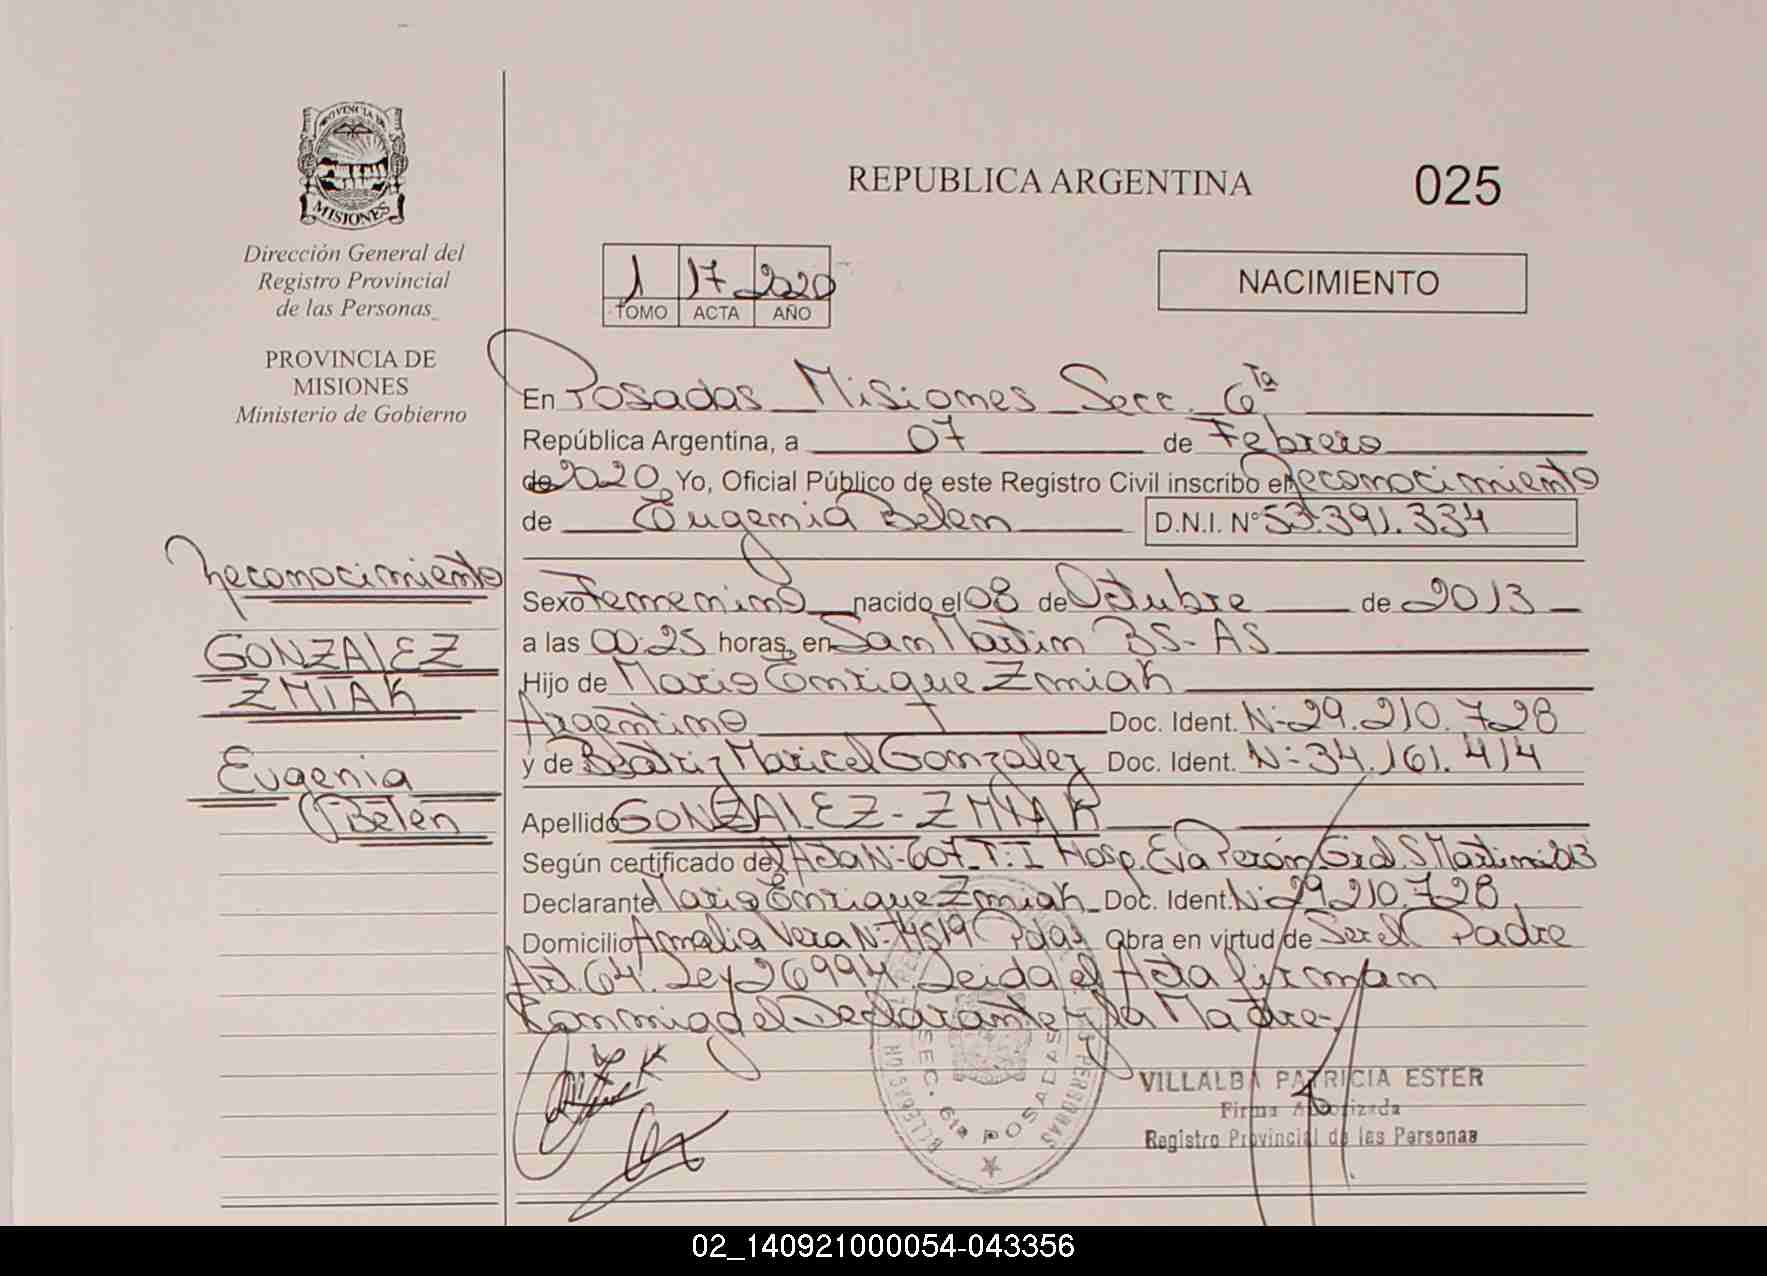 PROVINCIA DE
MISIONES
Dirección General del
Registro Provincial
de las Personas
PROVINCIA DE
MISIONES
Ministerio de Gobierno
Reconocimiento
GONZALEZ
ZMIAK
Eugenia
Belen
REPUBLICA ARGENTINA
025
1 17 2020
TOMO ACTA AÑO
NACIMIENTO
En Posadas Misiones Secc. 6ta
República Argentina, a 07 de Febrero
de 2020 Yo, Oficial Público de este Registro Civil inscribo el Reconocimiento
de Eugenia Belen D.N.I. N° 53.391.334
Sexo Femenino nacido el 08 de Octubre de 2013
a las 00:25 horas, en San Martin BS-AS
Hijo de Mario Enrique Zmiak
Argentino Doc. Ident. N- 29.210.728
y de Beatriz Maricel Gonzalez Doc. Ident. N- 34.161.414
Apellido GONZALEZ-ZMIAK
Según certificado de Acta N- 607 T: I Hosp. Eva Perón Gral S Martin 2013
Declarante Mario Enrique Zmiak Doc. Ident. N- 29.210.728
Domicilio Amalia Vera N- 74519 Pdas Obra en virtud de Ser el Padre
Art. 64. Ley 26994. Leida el Acta firman
Conmigo el Declarante y la Madre-
SEC. 6ta POSADAS
VILLALBA PATRICIA ESTER
Firma Autorizada
Registro Provincial de las Personas
02_140921000054-043356